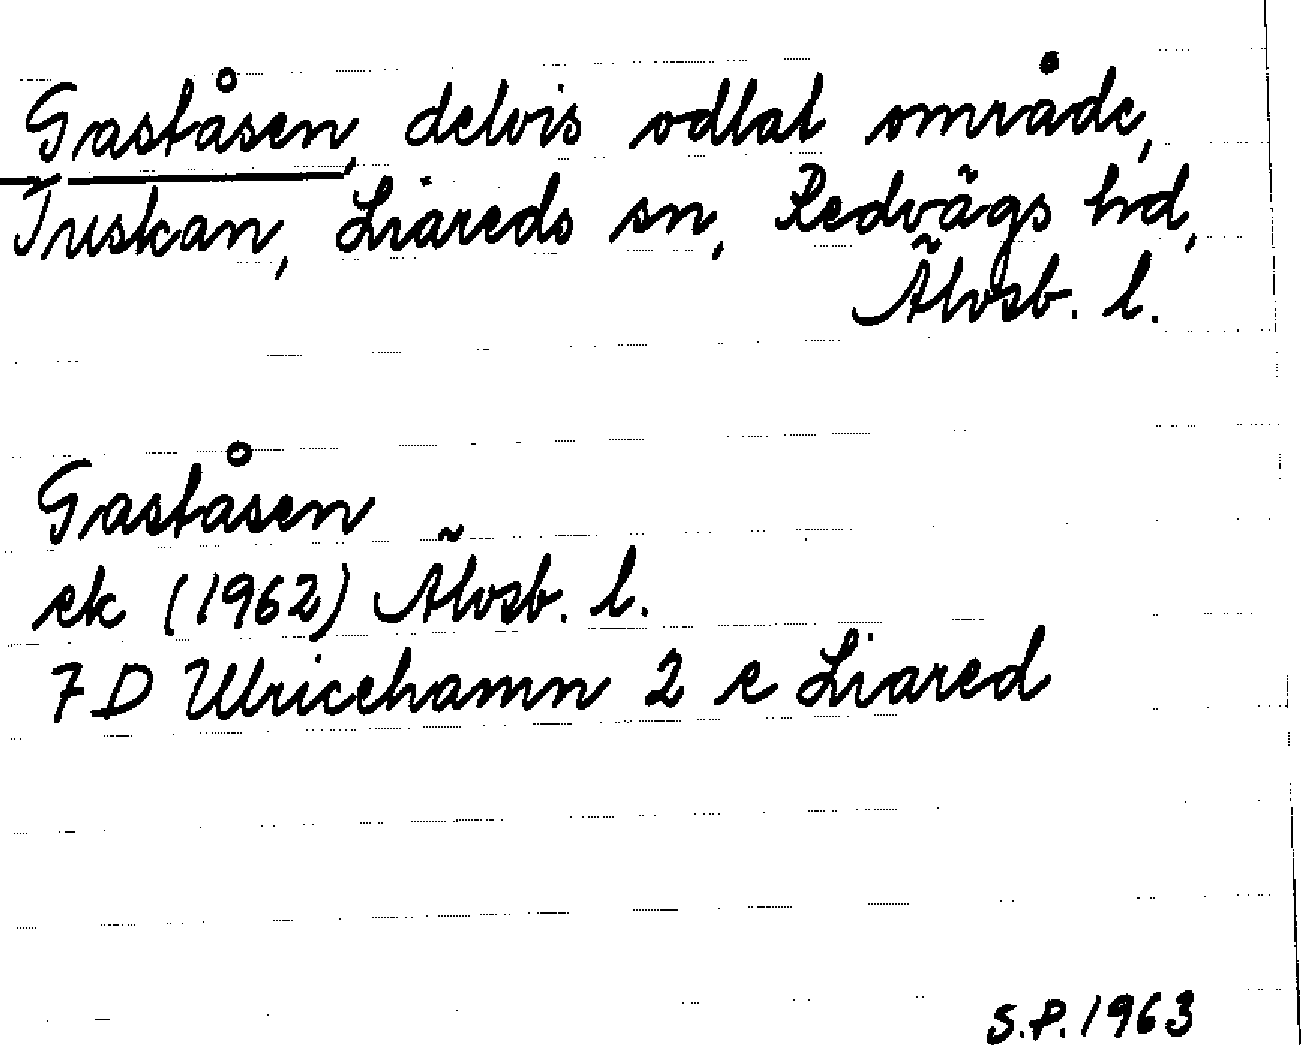 Gaståsen, delvis odlat område,
Truskan, Liareds sn, Redvägs hd,
Älvsb. l.
Gaståsen
ek (1962) Älvsb. l.
7 D Ulricehamn 2 e Liared
S.P. 1963